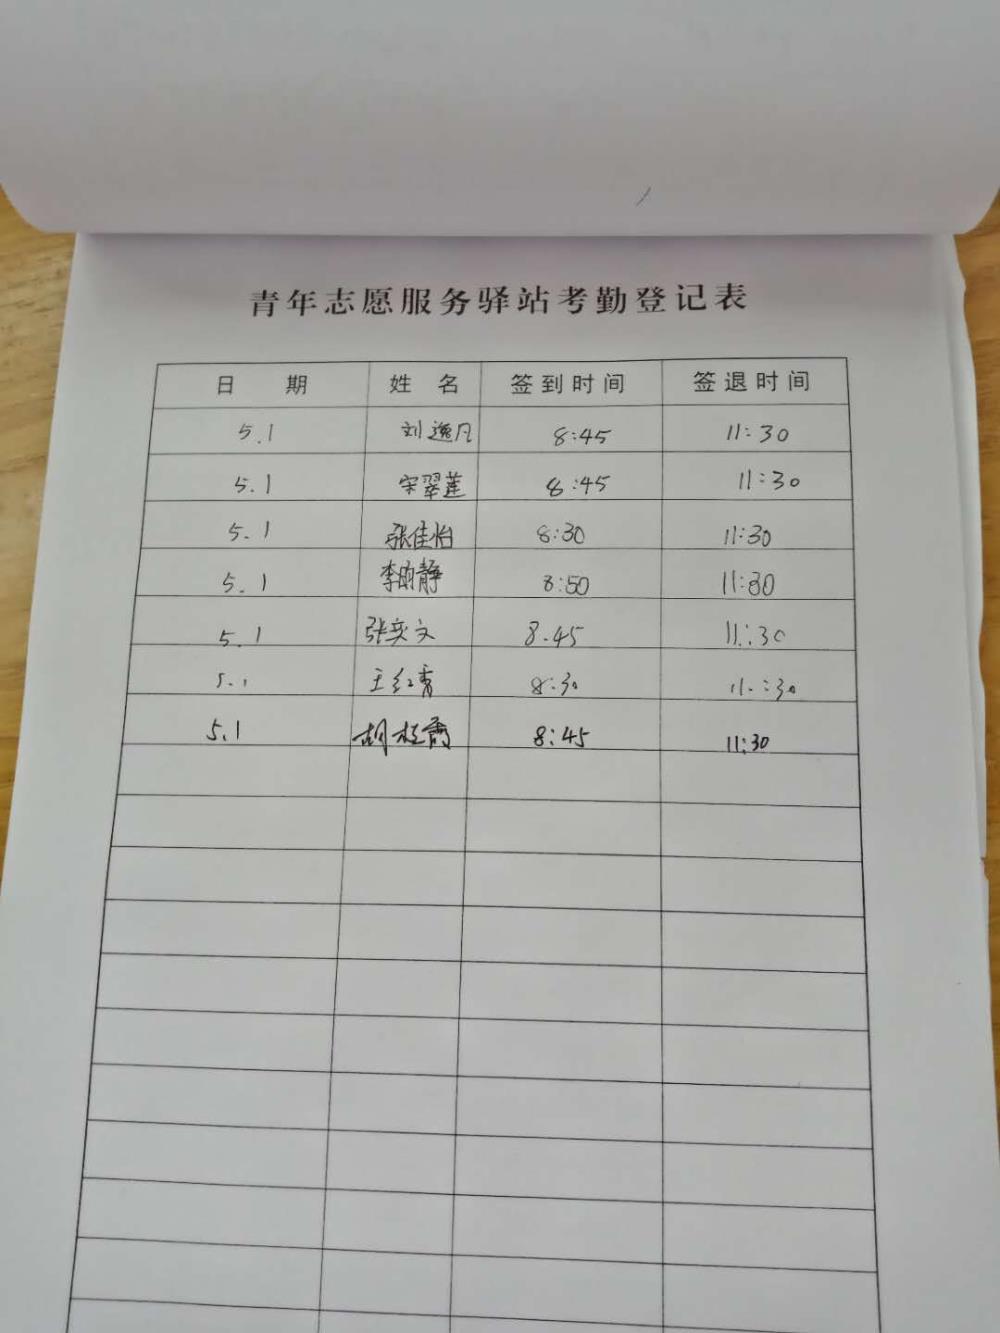 青年志愿服务驿站考勤登记表
日 期 姓 名 签到时间 签退时间
5.1 刘逸凡 8:45 11:30
5.1 宋翠莲 8:45 11:30
5.1 张佳怡 8:30 11:30
5.1 李昀静 8:50 11:30
5.1 张奕文 8.45 11:30
5.1 王红青 8.30 11:30
5.1 胡桂霞 8:45 11:30